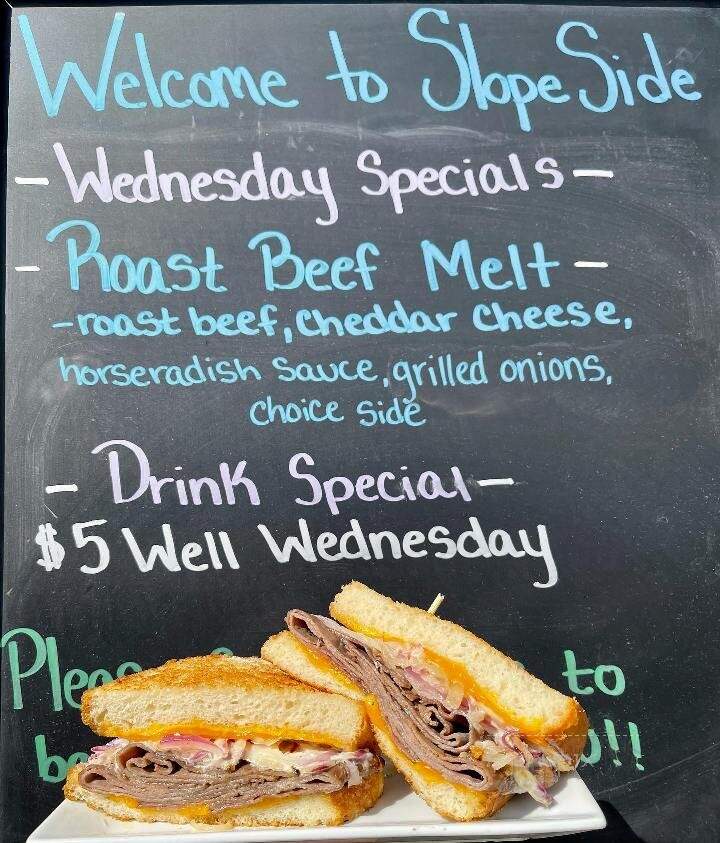 Welcome to Slope Side
- Wednesday Specials -
- Roast Beef Melt -
- roast beef, cheddar cheese,
horseradish sauce, grilled onions,
choice side
- Drink Special -
$5 Well Wednesday
to
!!